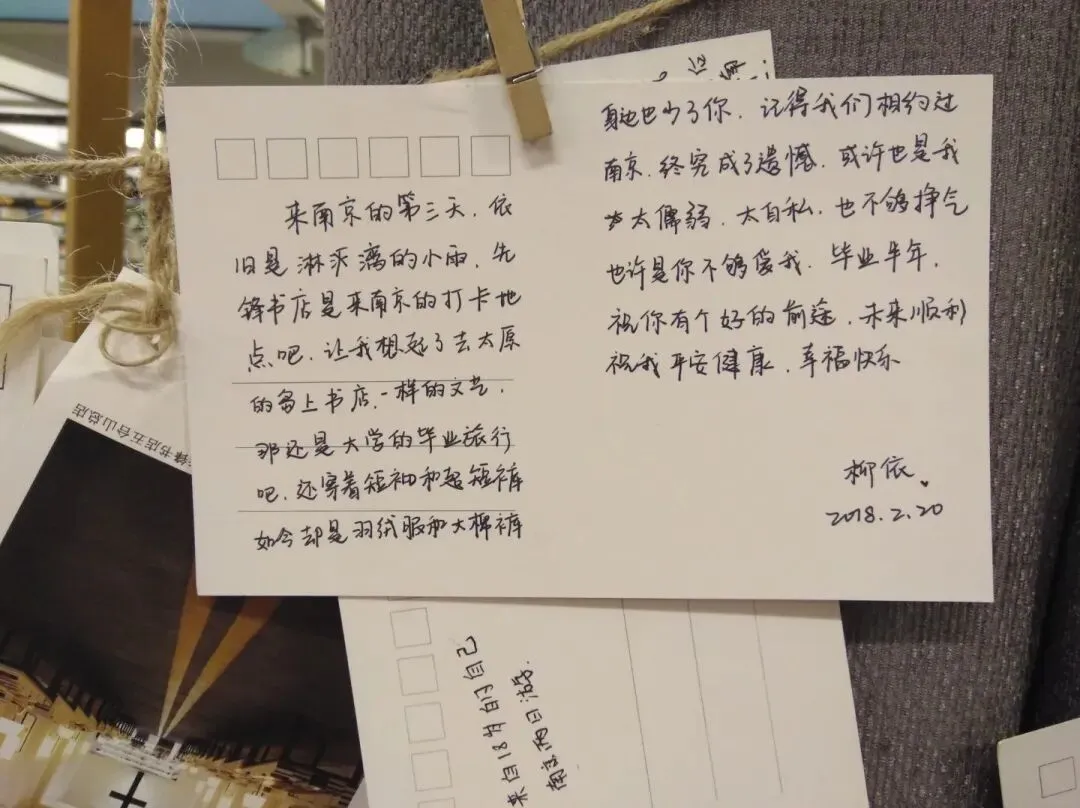 来南京的第三天，依
旧是淋淋漓的小雨，先
锋书店是来南京的打卡地
点吧，让我想起了去太原
的乡上书店，一样的文艺，
那还是大学的毕业旅行
吧，还穿着短袖和超短裤
如今却是羽绒服和大棉裤
身边也少了你，记得我们相约过
南京，终究成了遗憾，或许也是我
太懦弱，太自私，也不够挣气
也许是你不够爱我，毕业半年，
祝你有个好的前途，未来顺利
祝我平安健康，幸福快乐
柳依
2018.2.20
来自18岁的自己
南京两日游.
锋书店五台山总店